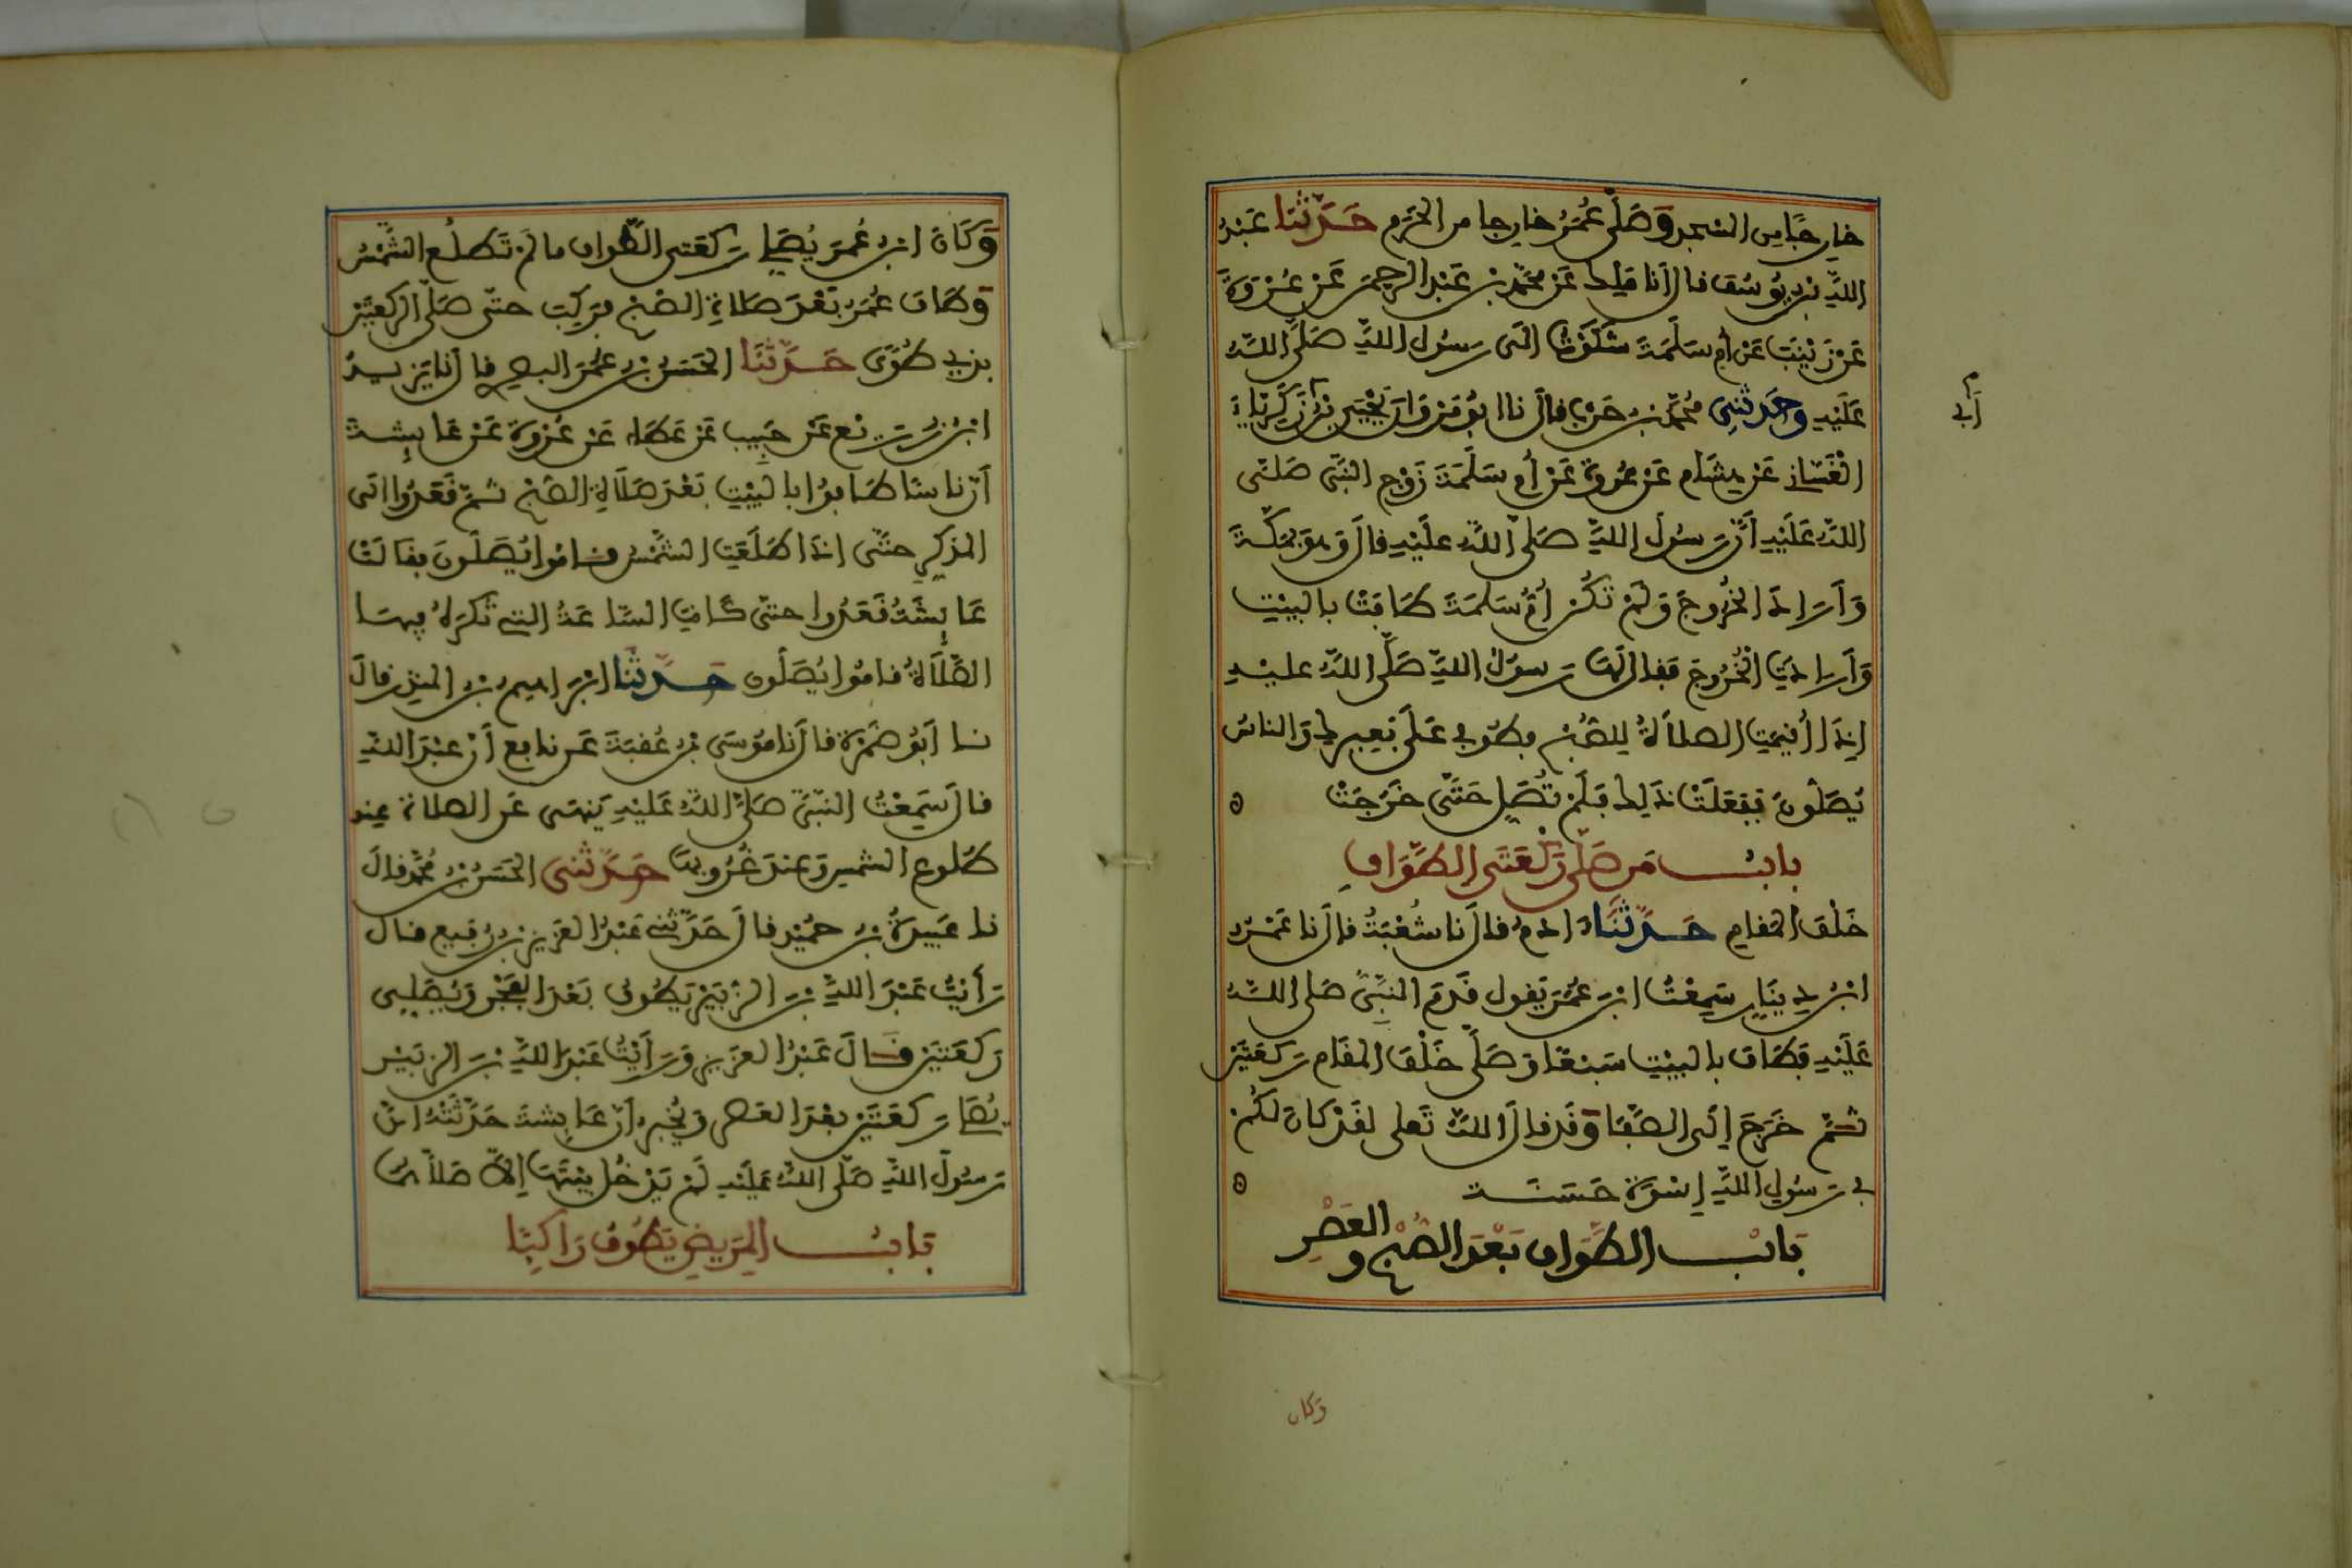 خارجًا من المسجد وَصَلَّى عُمَرُ خارجا من الحَرَم حَدَّثَنَا عَبْدُ
اللهِ بْن يُوسُفَ قال أنا مَلِك عَنْ محَمَّدِ بْن عَبْدِ الرحمن عَنْ عُرْوَةَ
عَنْ زَيْنَبَ عَنْ أم سَلَمَةَ شَكَوْتُ إلَى رسُولِ اللهِ صَلَّى اللهُ
عَلَيْهِ وحَدثَنِي مُحَمَّد بْن حَرْب قال نا ابُو مَرْوَان يَحْيَى بْنُ زَكَرِيَّاءَ
أبي
الْغَسَّانِي عَنْ هِشَام عَنْ عُرْوَةَ عَنْ أُم سَلَمَةَ زَوْج النَّبِي صَلَّى
اللهُ عَلَيْهِ أنَّ رسُولَ اللهِ صَلَّى اللهُ عليْهِ قالَ وَهوَ بمَكَّةَ
وَأرَادَ الخُرُوجَ وَلَمْ تَكُنْ أُمُّ سَلَمَةَ طَافَتْ بالبَيْتِ
وَأرَادَتِ الْخُرُوجَ فقال لَهَا رسولُ اللهِ صَلَّى اللهُ عليْهِ
إذَا أُقيمَتِ الصلاَةُ لِلصُّبْح فطُوفِي عَلَى بَعِيرِك وَالناسُ
يُصَلُّونَ ففعَلَتْ ذَلِك فَلَمْ تُصَلِ حَتَّى خَرَجَتْ
بابُ مَن صَلَّى رَكْعَتَي الطَّوَافِ
خَلْفَ المقامِ حَدَّثَنَا ادم قال نا شُعْبَةُ قال نا عَمْرُو
ابْنُ دِينَارٍ سَمِعْتُ ابْنَ عُمَرَ يَقول قَدِمَ النَّبِيُّ صَلى اللهُ
عَلَيْهِ فَطَافَ بالبَيْتِ سَبْعًا وَصَلَّى خَلْفَ المقَام رَكعَتَيْن
ثُمَّ خَرَجَ إلَى الصَّفَا وَقَد قال اللهُ تَعلى لقَدْ كانَ لَكُمْ
في رسُولِ اللهِ إسْوَة حَسَنَة
بَابُ الطَّوَاف بَعْدَ الصُّبْح والعَصْرِ
وكان
وَكَانَ ابْن عُمَرَ يُصَلِّي رَكعَتي الطَّوَاف ما لَمْ تَطلُعِ الشَّمْسُ
وَطَافَ عُمَرُ بَعْدَ صَلاةِ الصُّبْح فرَكِبَ حتَّى صَلَّى الركعَتَيْن
بِذِي طُوًى حَدَّثَنَا الحَسَنُ بْن عُمَرَ البصري قال أنا يَزِيدُ
ابْنُ زُرَيْع عَنْ حَبِيب عَنْ عَطَاء عَنْ عُرْوَةَ عَنْ عَائِشَةَ
أنَّ نَاسًا طَافوُا بالبَيْتِ بَعْدَ صَلاَةِ الصُّبْح ثُمَّ قَعَدُوا إلَى
المذَكِّرِ حتَّى إذَا طَلَعَتِ الشَّمْسُ قامُوا يُصَلُّونَ فقالَتْ
عَائِشَةُ قَعَدُوا حتَّى كَانَتِ السَّاعَةُ التي تُكرَهُ فِيهَا
الصَّلاَةُ قامُوا يُصَلُّون حَدَّثَنَا ابْرَاهيم بْن المنذِر قالَ
نا أبُو ضَمْرَةَ قال أنا مُوسَى بْن عُقبَةَ عَن نافِع أنَّ عَبْدَ اللهِ
قال سَمِعْتُ النَّبِيَّ صَلَّى اللهُ عَلَيْهِ يَنْهَى عَن الصلاة عِند
طُلوعِ الشمس وَعِندَ غُرُوبِهَا حَدَّثَنِي الحَسَنُ بْن مُحَمَّد قالَ
نا عَبِيدَةُ بْن حمَيْد قال حَدَّثَنِي عَبْدُ العَزيز بْن رُفيع قال
رَأيْتُ عَبْدَ اللهِ بْنَ الزُّبَيْرِ يَطُوفُ بَعْدَ الفَجْرِ وَيُصَلِّي
رَكعَتَيْن قالَ عَبْدُ العَزيز وَرَأيْتُ عَبْدَ اللهِ بْنَ الزبَيْر
يُصَلِّي رَكعَتَيْن بعْدَ العَصر وَيُخْبِر أنَّ عَائِشَةَ حَدَّثَتْهُ أنَّ
رَسُولَ اللهِ صَلَّى اللهُ عَلَيْهِ لَمْ يَدْخُلْ بَيْتَهَا إلاَّ صَلاَّهُمَا
بَابُ المَرِيضِ يَطُوفُ رَاكِبًا